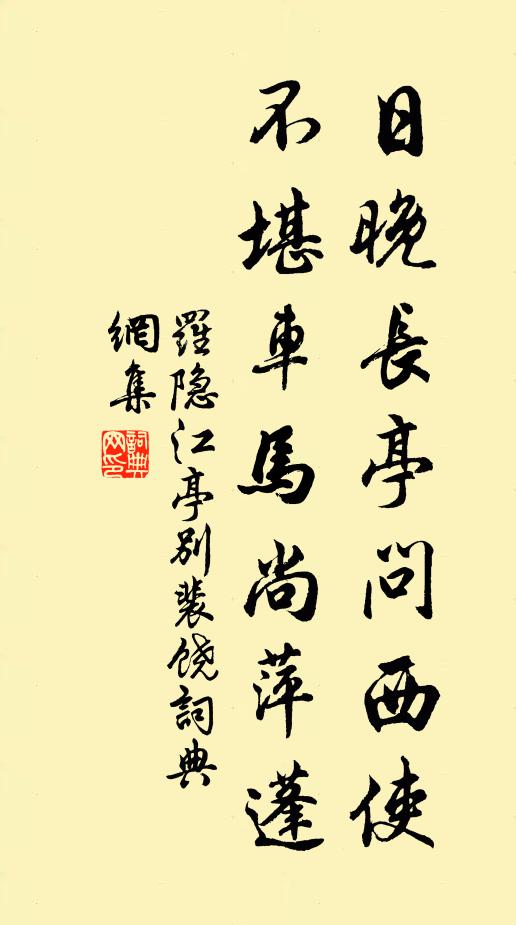 日晚長亭問西使
不堪車馬尚萍蓬
羅隐江亭别裴饶詞典
網集
詞典
网